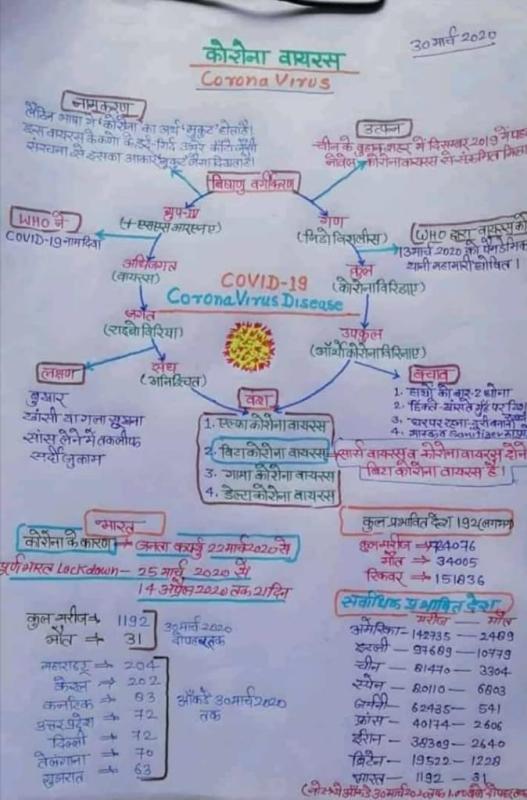 30 मार्च 2020
कोरोना वायरस
Corona Virus
नामकरण
लैटिन भाषा में 'कोरोना' का अर्थ 'मुकुट' होता है।
इस वायरस के कणों के इर्द-गिर्द उभरे कांटे जैसी
संरचना से इसका आकार मुकुट जैसा दिखता है।
उत्पन्न
चीन के वुहान शहर में दिसम्बर 2019 में
नोवेल कोरोनावायरस से संक्रमित मिला
विषाणु वर्गीकरण
ग्रुप-IV
(+ एसएसआरएनए)
गण
(निडोविरालीस)
WHO ने
COVID-19 नाम दिया
WHO द्वारा वायरस को
13मार्च 2020 को पैनडेमिक
यानी महामारी घोषित।
अधिजगत
(वायरस)
कुल
(कोरोनाविरिडाए)
COVID-19
Corona Virus Disease
जगत
(राइबोविरिया)
उपकुल
(ऑर्थोकोरोनाविरिनाए)
संघ
(अनिश्चित)
लक्षण
बुखार
खांसी या गला सूखना
सांस लेने में तकलीफ
सर्दी जुकाम
बचाव
1. हाथों को बार-2 धोना
2. छिंकते-खांसते मुँह पर
3. घर पर रहना, दूरी बनाना
4. मास्क व Sanitizer
वंश
1. एल्फा कोरोना वायरस
2. बिटा कोरोना वायरस
3. गामा कोरोना वायरस
4. डेल्टा कोरोना वायरस
सार्स वायरस व कोरोना वायरस दोनों
बिटा कोरोना वायरस है।
भारत
कोरोना के कारण → जनता कर्फ्यू 22 मार्च 2020 से
पूर्ण भारत Lockdown – 25 मार्च 2020 से
14 अप्रैल 2020 तक 21 दिन
कुल मरीज ⇒ 1192
मौत ⇒ 31
30 मार्च 2020
दोपहर तक
महाराष्ट्र ⇒ 204
केरल ⇒ 202
कर्नाटक ⇒ 83
उत्तरप्रदेश ⇒ 72
दिल्ली ⇒ 72
तेलंगाना ⇒ 70
गुजरात ⇒ 63
आँकडे 30 मार्च 2020
तक
कुल प्रभावित देश 192 (लगभग)
कुल मरीज
मौत ⇒ 34005
रिकवर ⇒ 151836
सर्वाधिक प्रभावित देश
मरीज – मौत
अमेरिका – 142735 – 2489
इटली – 97689 – 10779
चीन – 81470 – 3304
स्पेन – 80110 – 6803
जर्मनी – 62435 – 541
फ्रांस – 40174 – 2606
ईरान – 38309 – 2640
ब्रिटेन – 19522 – 1228
भारत – 1192 – 31
(नोट: ये आँकडे 30 मार्च 2020 तक दोपहर तक